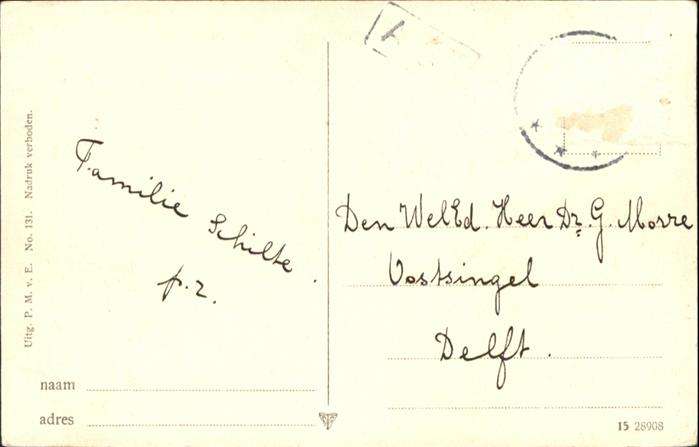 Uitg. P. M. v. E. No. 131. Nadruk verboden.
Familie Schilte
p.r.
Den WelEd. Heer Dr. G. Morre
Oostsingel
Delft.
naam
adres
15 28908